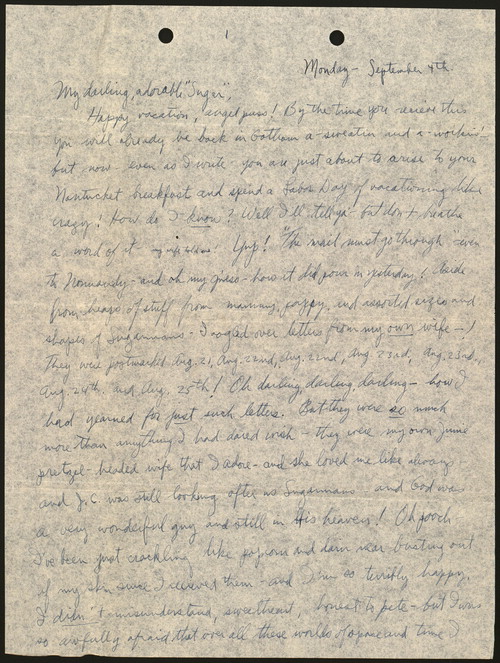 1
Monday - September 4th
My darling, adorable "Sugar",
Happy vacation, angel puss! By the time you receive this
you will already be back in Gotham a-sweatin and a-workin' -
but now - even as I write - you are just about to arise to your
Nantucket breakfast and spend a Labor Day of vacationing like
crazy! How do I know? Well I'll tell ya - but don't breathe
a word of it - Yup! "The mail must go through - even
to Normandy - and oh my - how it did pour in yesterday! Aside
from heaps of stuff from mammy, pappy, and assorted sizes and
shapes of Sugarmans - I oogled over letters from my own wife - !
They were postmarked Aug. 21, Aug. 22nd, Aug. 22nd, Aug. 23rd, Aug. 23rd,
Aug. 24th. and Aug. 25th! Oh darling, darling, darling - how I
had yearned for just such letters. But they were so much
more than anything I had dared wish - they were my own
pretzel-headed wife that I adore - and she loved me like always
and J.C was still looking after us Sugarmans - and God was
a very wonderful guy and still in His heavens! Oh pooch
I've been just crackling like popcorn and darn near busting out
of my skin since I received them - and I am so terribly happy.
I didn't misunderstand, sweetheart, honest to pete - but I was
so awfully afraid that over all these worlds of space and time I